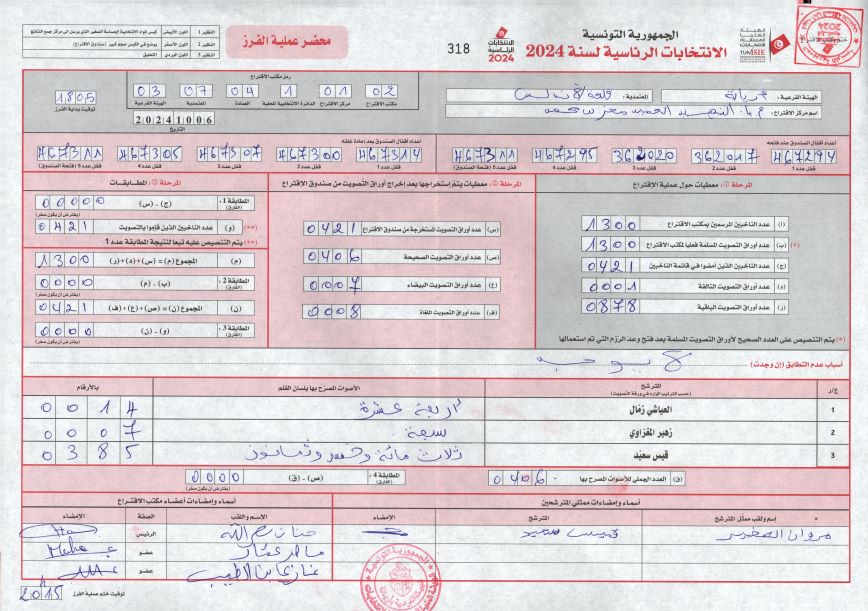 الجمهورية التونسية
الانتخابات الرئاسية لسنة 2024
318
محضر عملية الفرز
النظير 1 اللون الأبيض
النظير 2 اللون الأزرق
النظير 3 اللون الوردي التعليق
الهيئة الفرعية: أريانة
المعتمدية: قلعة الأندلس
اسم مركز الاقتراع:
رمز مكتب الاقتراع
02 01 1 04 07 03
مكتب الاقتراع مركز الاقتراع الدائرة الانتخابية المحلية العمادة المعتمدية الهيئة الفرعية
20241006
التاريخ
1805
توقيت بداية الفرز
أعداد أقفال الصندوق عند فتحه
467294 362017 362020 467295 467311
قفل عدد 1 قفل عدد 2 قفل عدد 3 قفل عدد 4 قفل عدد 5 (فتحة الصندوق)
أعداد أقفال الصندوق بعد إعادة غلقه
467314 467300 467307 467305 467311
قفل عدد 1 قفل عدد 2 قفل عدد 3 قفل عدد 4 قفل عدد 5 (فتحة الصندوق)
المرحلة 1: معطيات حول عملية الاقتراع
(أ) عدد الناخبين المرسمين بمكتب الاقتراع 1300
(*) (ب) عدد أوراق التصويت المسلمة فعليا لمكتب الاقتراع 1300
(ج) عدد الناخبين الذين أمضوا في قائمة الناخبين 0421
(د) عدد أوراق التصويت التالفة 0001
(ر) عدد أوراق التصويت الباقية 0878
(*) يتم التنصيص على العدد الصحيح لأوراق التصويت المسلمة بعد فتح وعد الرزم التي تم استعمالها
المرحلة 2: معطيات يتم إستخراجها بعد إخراج أوراق التصويت من صندوق الاقتراع
(س) عدد أوراق التصويت المستخرجة من صندوق الاقتراع 0421
(ص) عدد أوراق التصويت الصحيحة 0406
(ع) عدد أوراق التصويت البيضاء 0007
(ف) عدد أوراق التصويت الملغاة 0008
المرحلة 3: المطابقات
المطابقة 1: (الفارق) (ج) - (س) 00000 (يفترض أن يكون صفر)
(**) (و) عدد الناخبين الذين قاموا بالتصويت 0421
(**) يتم التنصيص عليه تبعا لنتيجة المطابقة عدد 1
(م) المجموع (م) = (س)+(د)+(ر) 1300
المطابقة 2: (الفارق) (ب) - (م) 0000 (يفترض أن يكون صفر)
(ن) المجموع (ن) = (ص)+(ع)+(ف) 0421
المطابقة 3: (الفارق) (و) - (ن) 0000 (يفترض أن يكون صفر)
أسباب عدم التطابق (إن وجدت) لا يوجد
ع/ر المترشح (حسب الترتيب الوارد في ورقة التصويت) الأصوات المصرح بها بلسان القلم بالأرقام
1 العياشي زمّال أربعة عشرة 0014
2 زهير المغزاوي سبعة 0007
3 قيس سعيّد ثلاث مائة وخمس وثمانون 0385
(ق) العدد الجملي للأصوات المصرح بها 0406
المطابقة 4: (الفارق) (ص) - (ق) 0000 (يفترض أن يكون صفر)
أسماء وإمضاءات ممثلي المترشحين
إسم ولقب ممثل المترشح المترشح الإمضاء
مروان قيس سعيد
أسماء وإمضاءات أعضاء مكتب الاقتراع
الإسم واللقب الصفة الإمضاء
الرئيس
عضو
عضو
توقيت ختم عملية الفرز 20h15